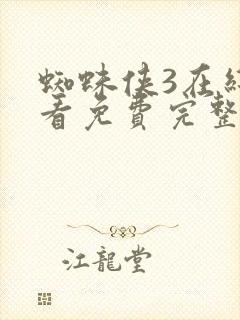 蜘蛛侠3在
看免費完整
江龍堂